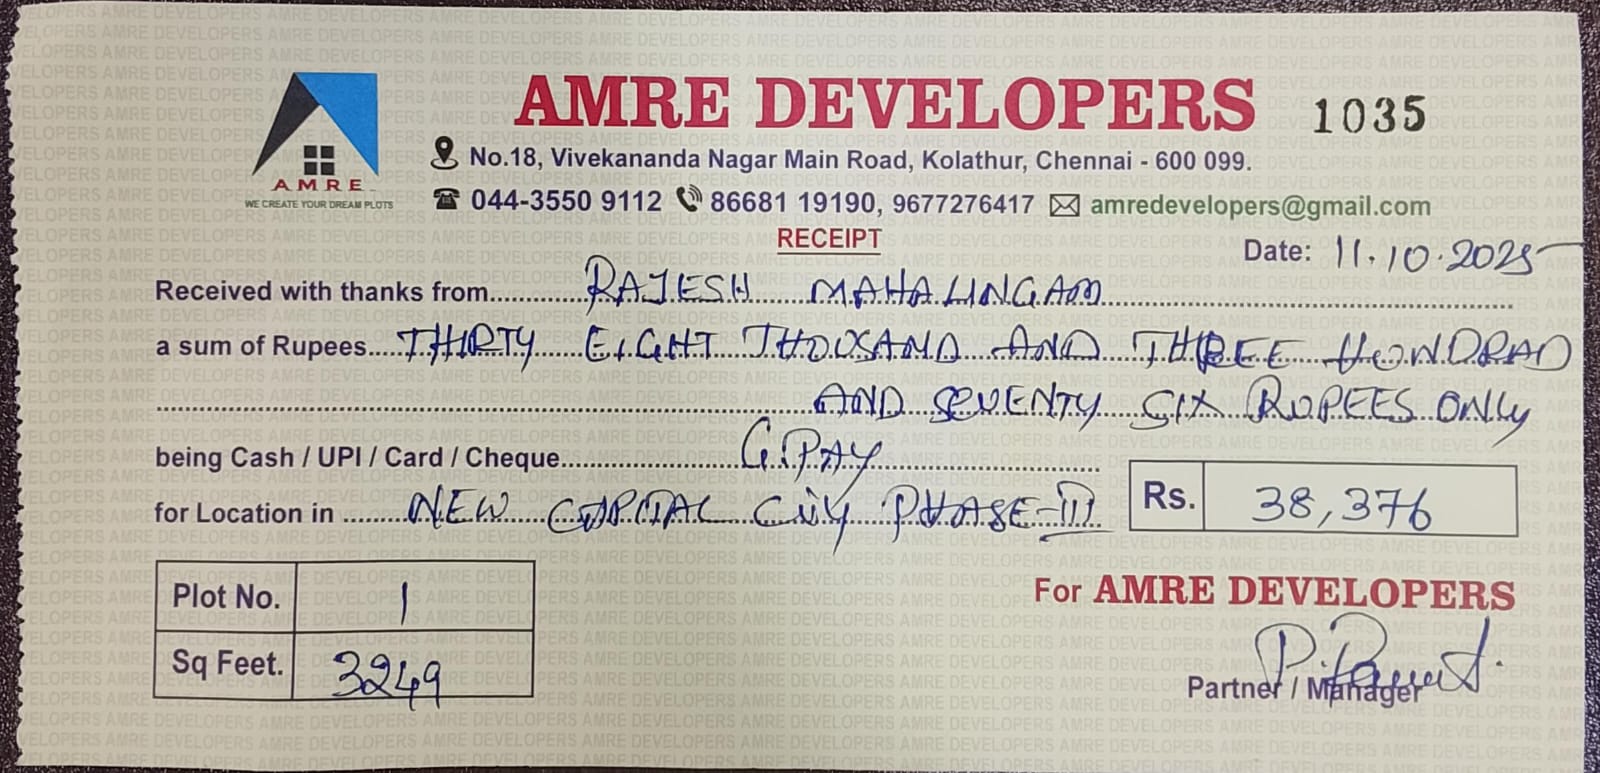 AMRE DEVELOPERS 1035
AMRE
WE CREATE YOUR DREAM PLOTS
No.18, Vivekananda Nagar Main Road, Kolathur, Chennai - 600 099.
044-3550 9112 86681 19190, 9677276417 amredevelopers@gmail.com
RECEIPT
Date: 11.10.2025
Received with thanks from RAJESH MAHALINGAM
a sum of Rupees THIRTY EIGHT THOUSAND AND THREE HUNDRAD
AND SEVENTY SIX RUPEES ONLY
being Cash / UPI / Card / Cheque G.PAY
for Location in NEW CAPITAL CITY PHASE-III Rs. 38,376
Plot No. 1
Sq Feet. 3249
For AMRE DEVELOPERS
Partner / Manager